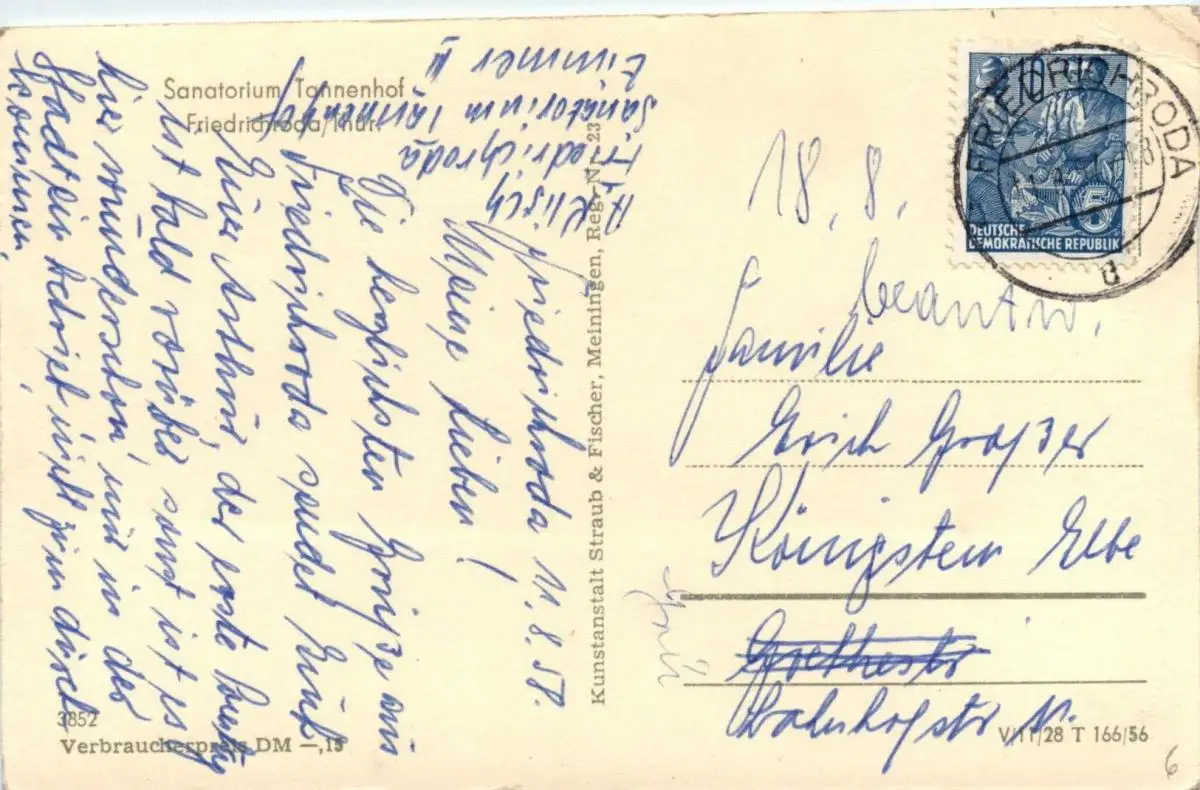 Sanatorium Tannenhof
Friedrichroda/Thür.
A. Klisch
Friedrichroda
Sanatorium Tannenhof
Zimmer III
Friedrichroda 11.8.58.
Meine Lieben!
Die herzlichsten Grüße aus
Friedrichroda sendet Euch
Euer Arthur, der erste
ist bald vorüber sonst ist es
hier wunderschön, nur in der
Stadt ein Betrieb nicht zum durch
kommen.
3852
Verbraucherpreis DM —,15
Kunstanstalt Straub & Fischer, Meiningen, Reg.-Nr. 23
10
5
DEUTSCHE
DEMOKRATISCHE REPUBLIK
FRIEDRICHRODA
d
18. 8.
beantw.
Familie
Erich Großer
Königstein Elbe
Goethestr
Bahnhofstr 11.
V/11/28 T 166/56
6